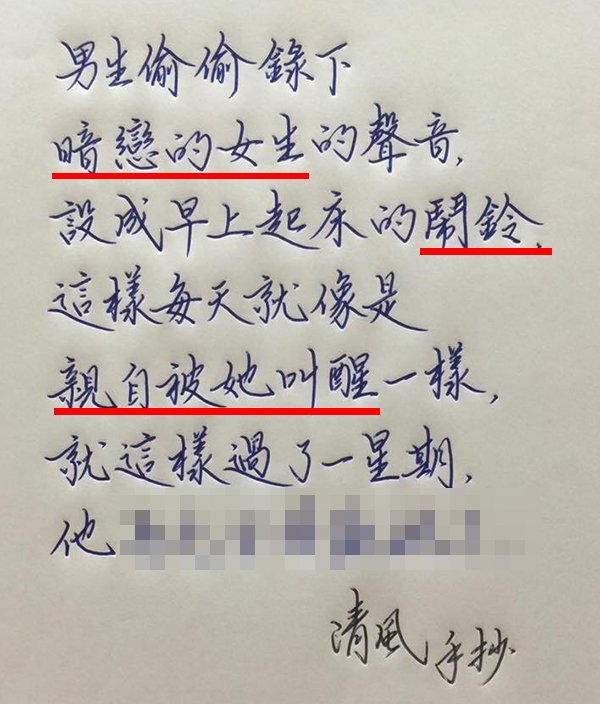 男生偷偷錄下
暗戀的女生的聲音，
設成早上起床的鬧鈴，
這樣每天就像是
親自被她叫醒一樣，
就這樣過了一星期，
他
清風手抄